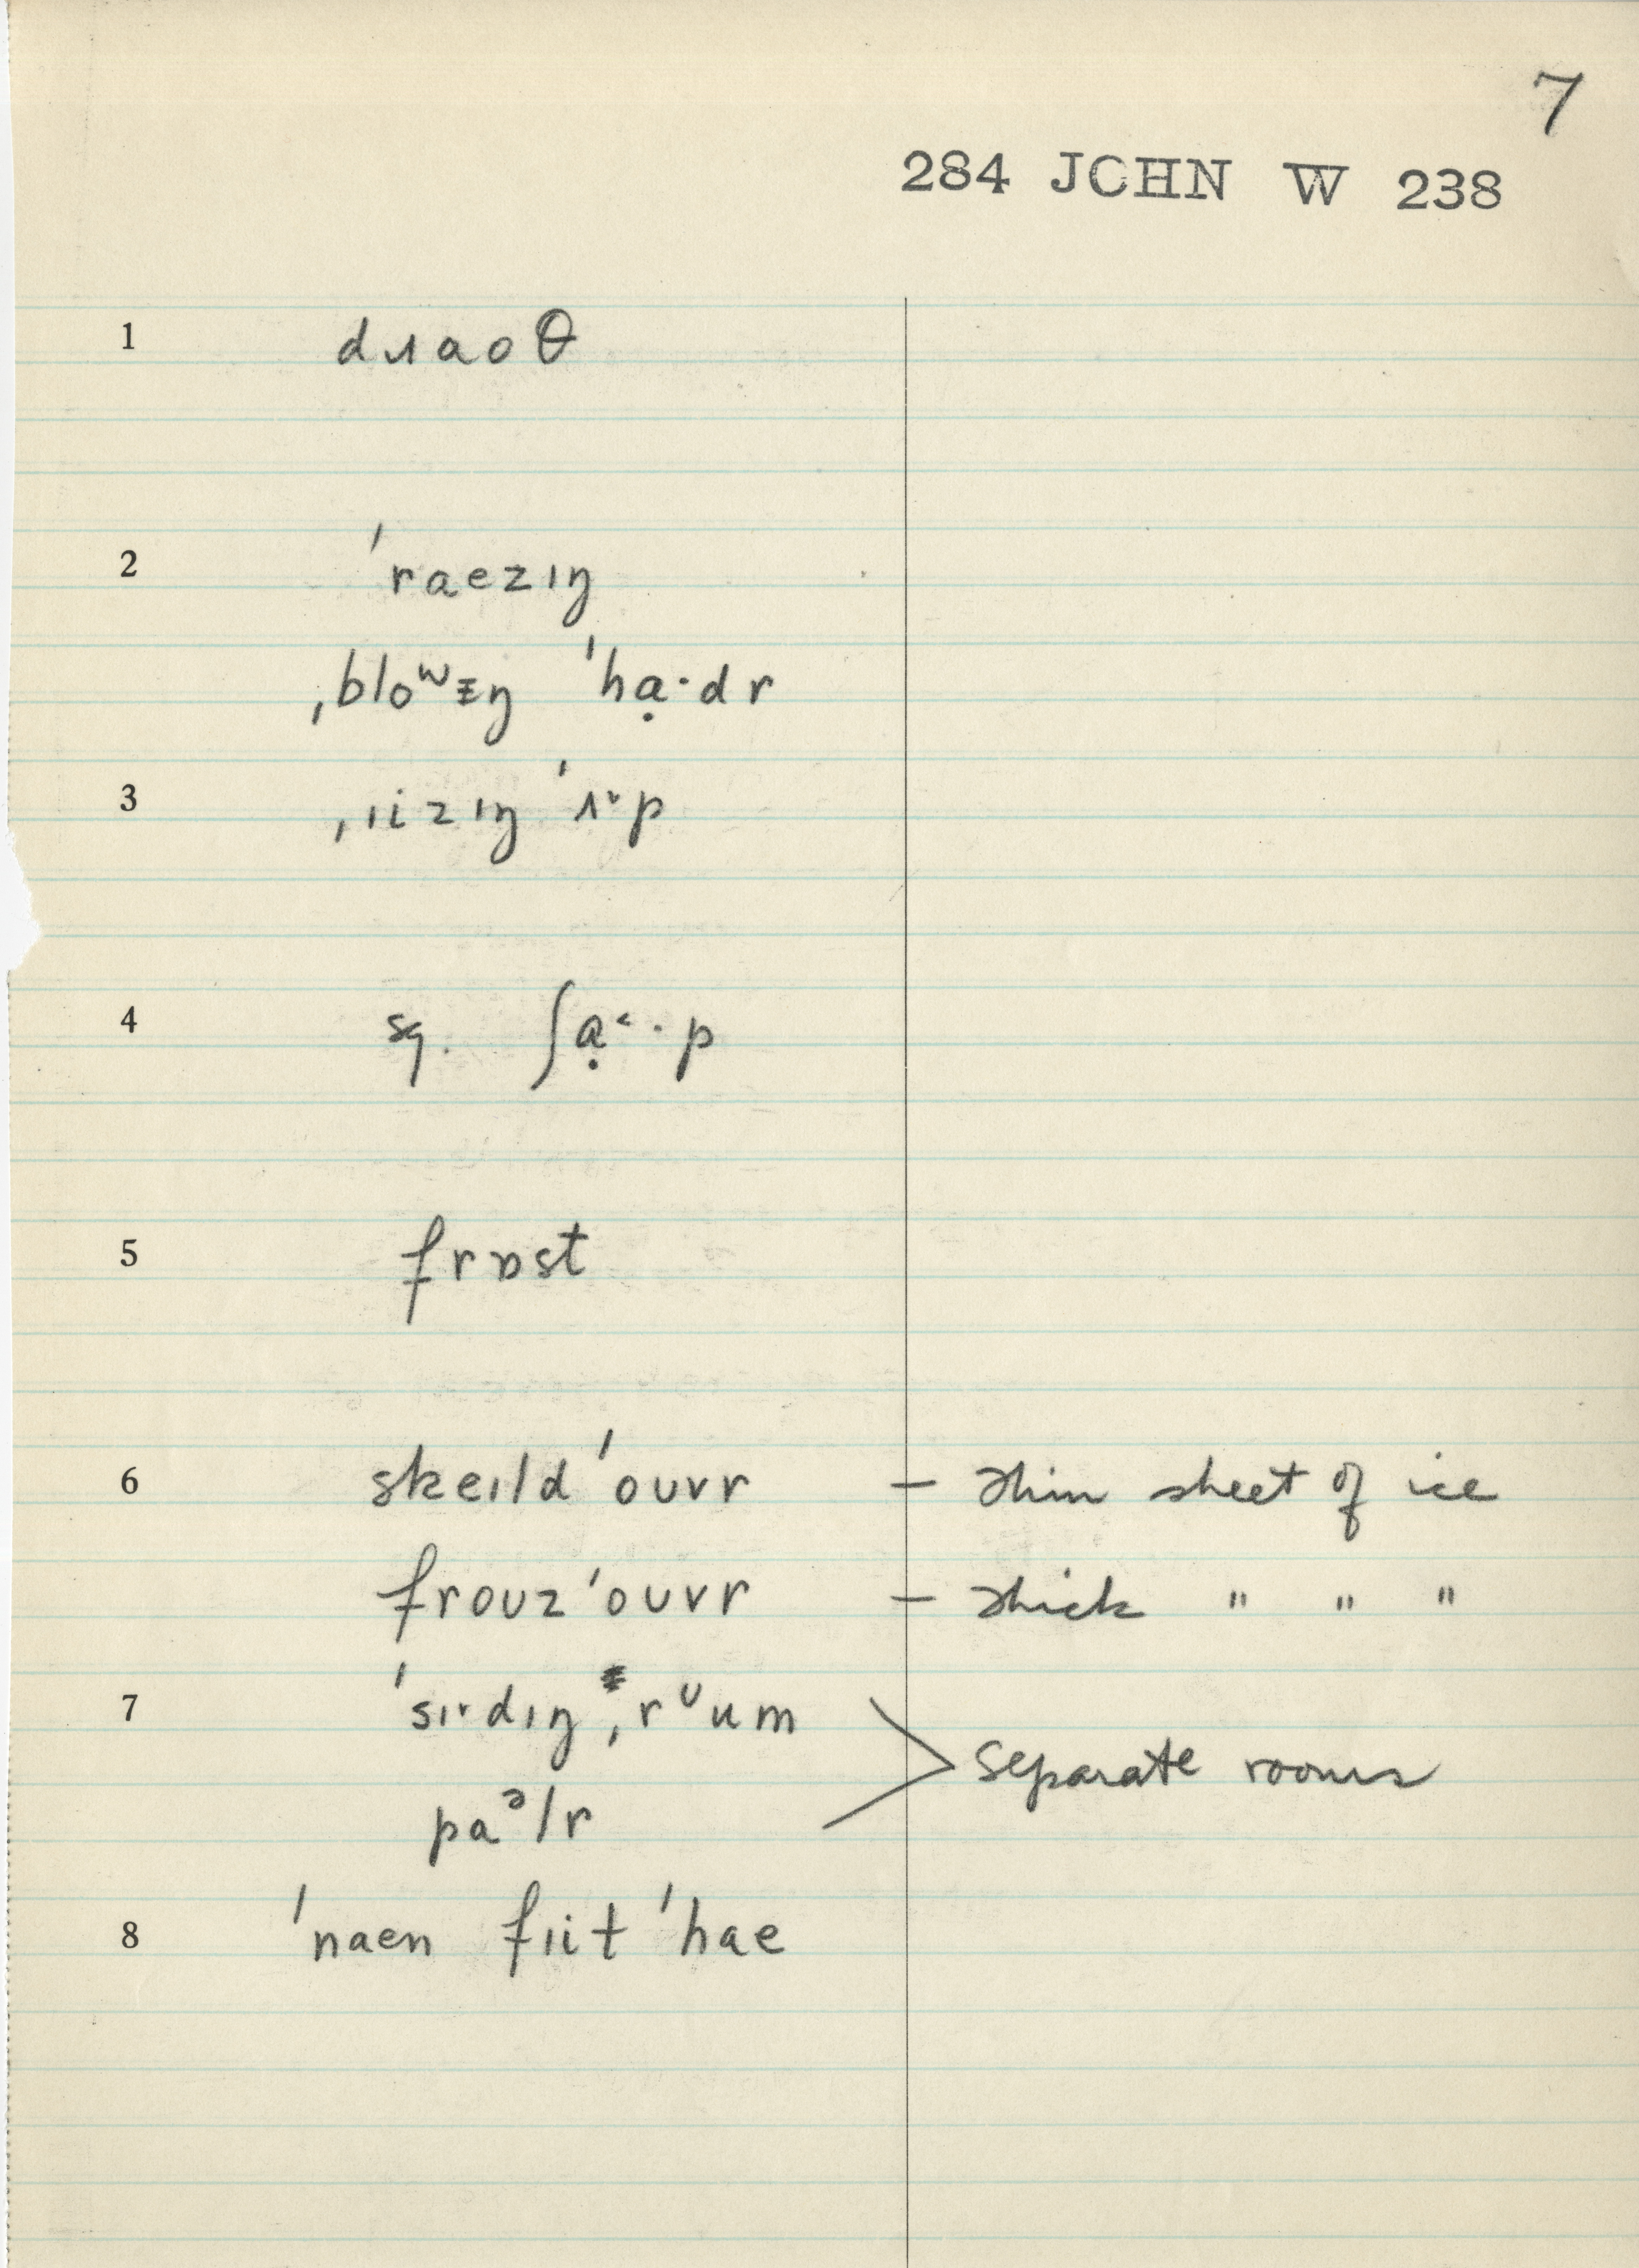 7
284 JOHN W 238
1 dɹaoθ
2 ˈraezɪŋ
ˌbloʷɪŋ ˈhạ·dr
3 ˌɪizɪŋ ˈʌ˞p
4 sq. ʃạ˂·p
5 frɒst
6 skeɪld ˈoʊvr – thin sheet of ice
froʊz ˈoʊvr – thick " " "
7 ˈsɪ˞dɪŋ ˌrᶷum
paᵊlr > separate rooms
8 ˈnaen fɪit ˈhae